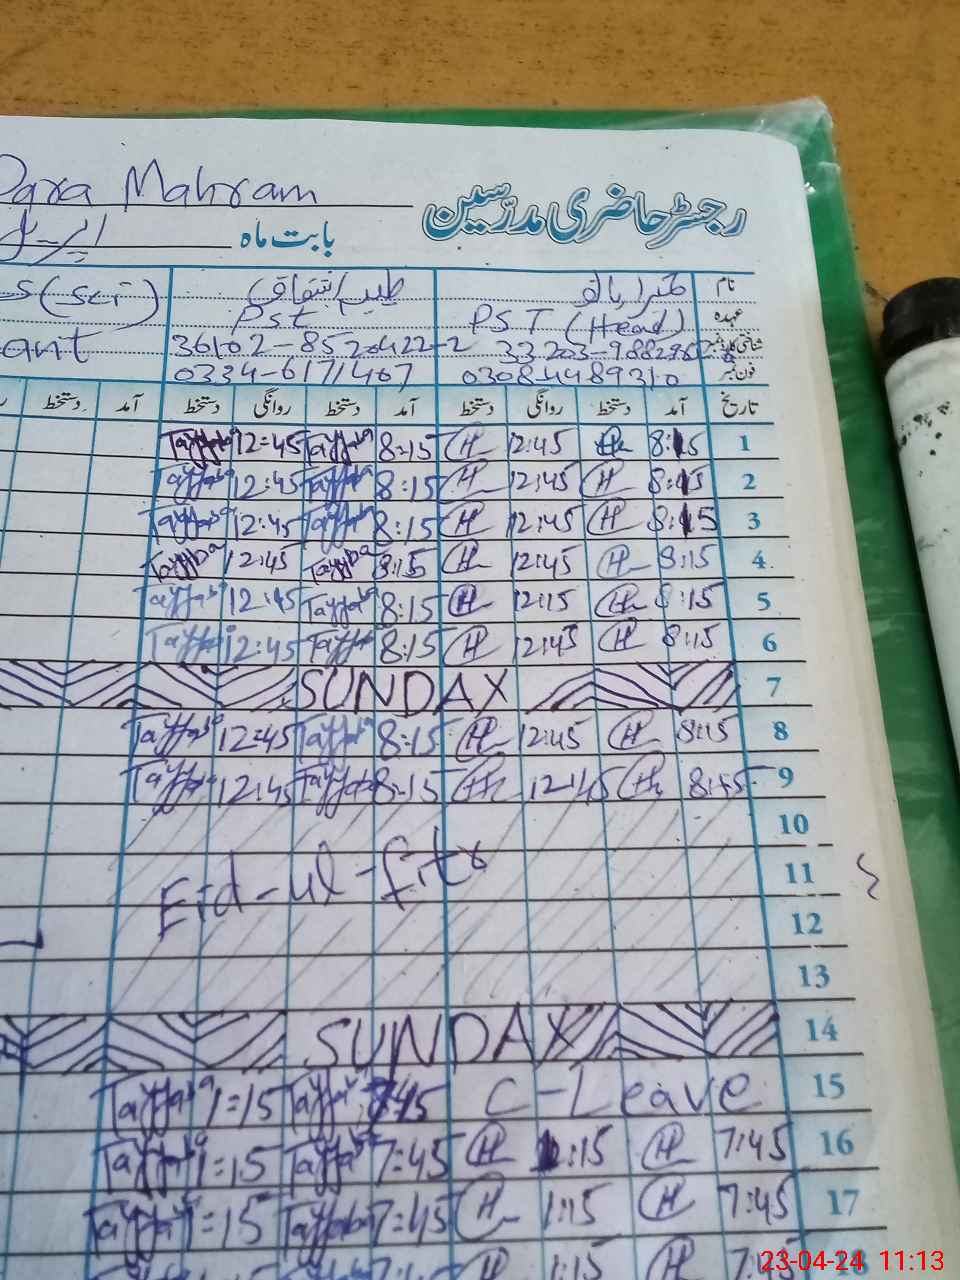 Dara Mahram
رجسٹر حاضری مدرسین
بابت ماہ اپریل
نام
طیبہ اشتیاق
(Sci)
عہدہ
PST (Head)
Pst
36102-8520422-2
فون نمبر
0308-4489310
0334-6171467
تاریخ آمد دستخط روانگی دستخط آمد دستخط روانگی دستخط آمد دستخط
1 8:15 H 12:45 H 8:15 Tayyaba 12:45 Tayyaba
2 8:15 H 12:45 H 8:15 Tayyaba 12:45 Tayyaba
3 8:15 H 12:45 H 8:15 Tayyaba 12:45 Tayyaba
4 8:15 H 12:45 H 8:15 Tayyba 12:45 Tayyba
5 8:15 H 12:15 H 8:15 Tayyaba 12:45 Tayyaba
6 8:15 H 12:45 H 8:15 Tayyaba 12:45 Tayyaba
7 SUNDAY
8 8:15 H 12:45 H 8:15 Tayyaba 12:45 Tayyaba
9 8:15 H 12:45 H 8:15 Tayyaba 12:45 Tayyaba
10
11 Eid-ul-fitr
12
13
14 SUNDAY
15 C-Leave 7:45 Tayyaba 1:15 Tayyaba
16 7:45 H 1:15 H 7:45 Tayyaba 1:15 Tayyaba
17 7:45 H 1:15 H 7:45 Tayyaba 1:15 Tayyaba
18 7:45 1:15
23-04-24 11:13